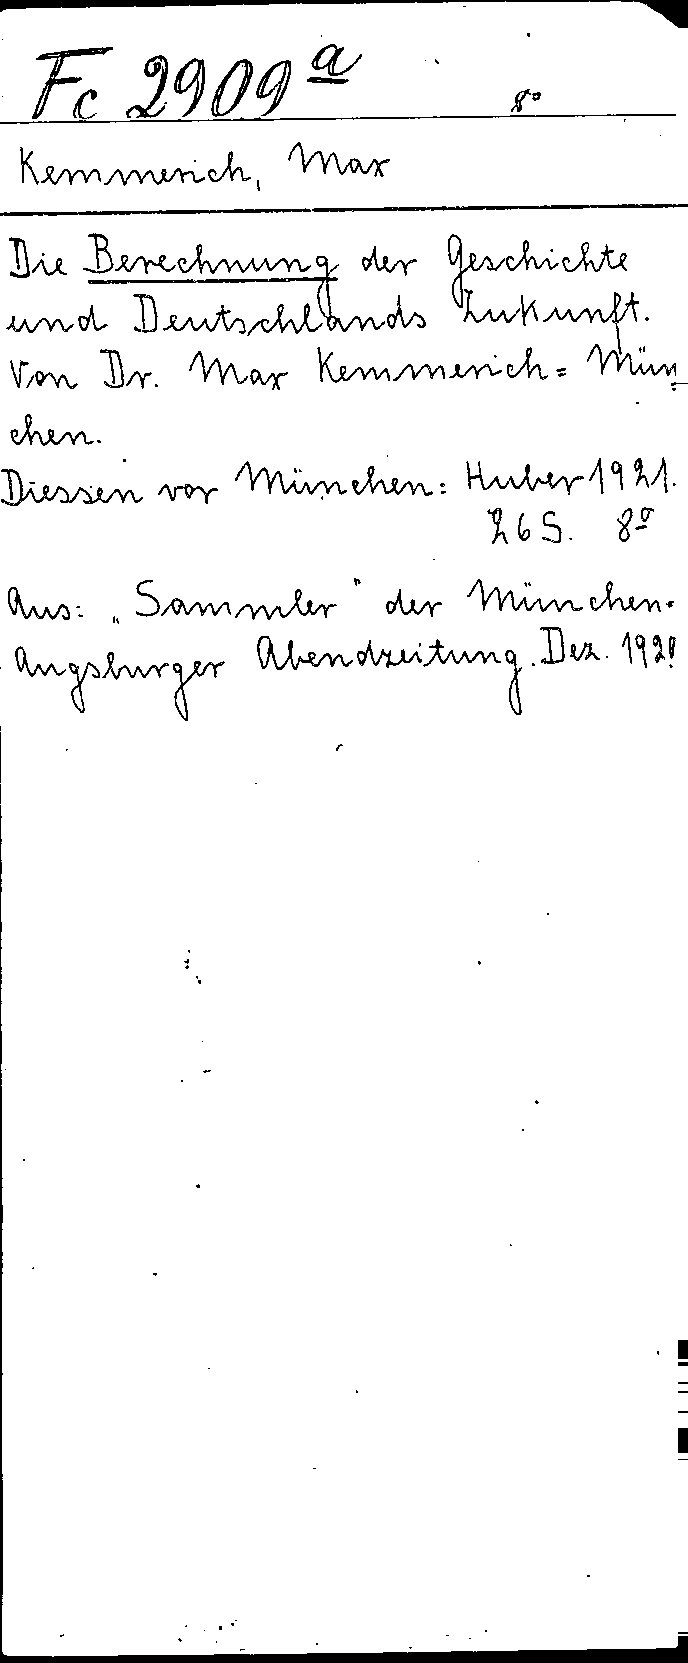 Fc 2909 a 8°
Kemmerich, Max
Die Berechnung der Geschichte
und Deutschlands Zukunft.
Von Dr. Max Kemmerich = Mün
chen.
Diessen vor München: Huber 1921.
26 S. 8°
Aus: „Sammler" der München=
Augsburger Abendzeitung. Dez. 1920